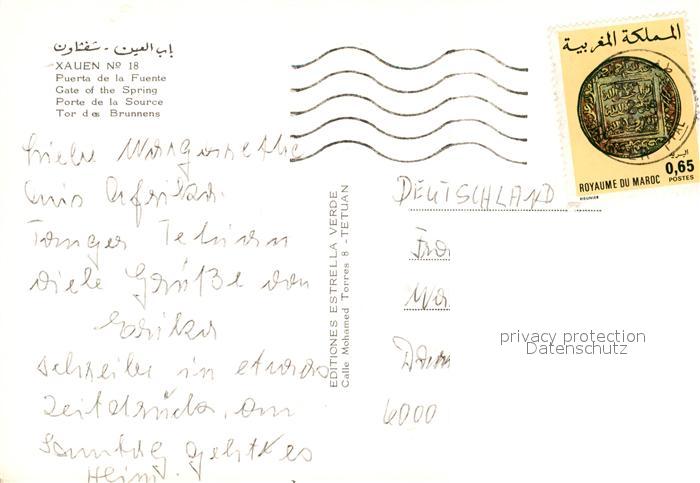 باب العين - شفشاون
XAUEN Nº 18
Puerta de la Fuente
Gate of the Spring
Porte de la Source
Tor des Brunnens
Liebe Margarethe
aus Afrika.
Tanger Tetuan
viele Grüße von
Erika
schreibe in etwas
Zeitdruck, am
Samstag geht es
Heim.
EDITIONES ESTRELLA VERDE
Calle Mohamed Torres 8 - TETUAN
المملكة المغربية
البريد
0,65
POSTES
ROYAUME DU MAROC
HEUNIER
DEUTSCHLAND
Fra
Ma
6000
privacy protection
Datenschutz